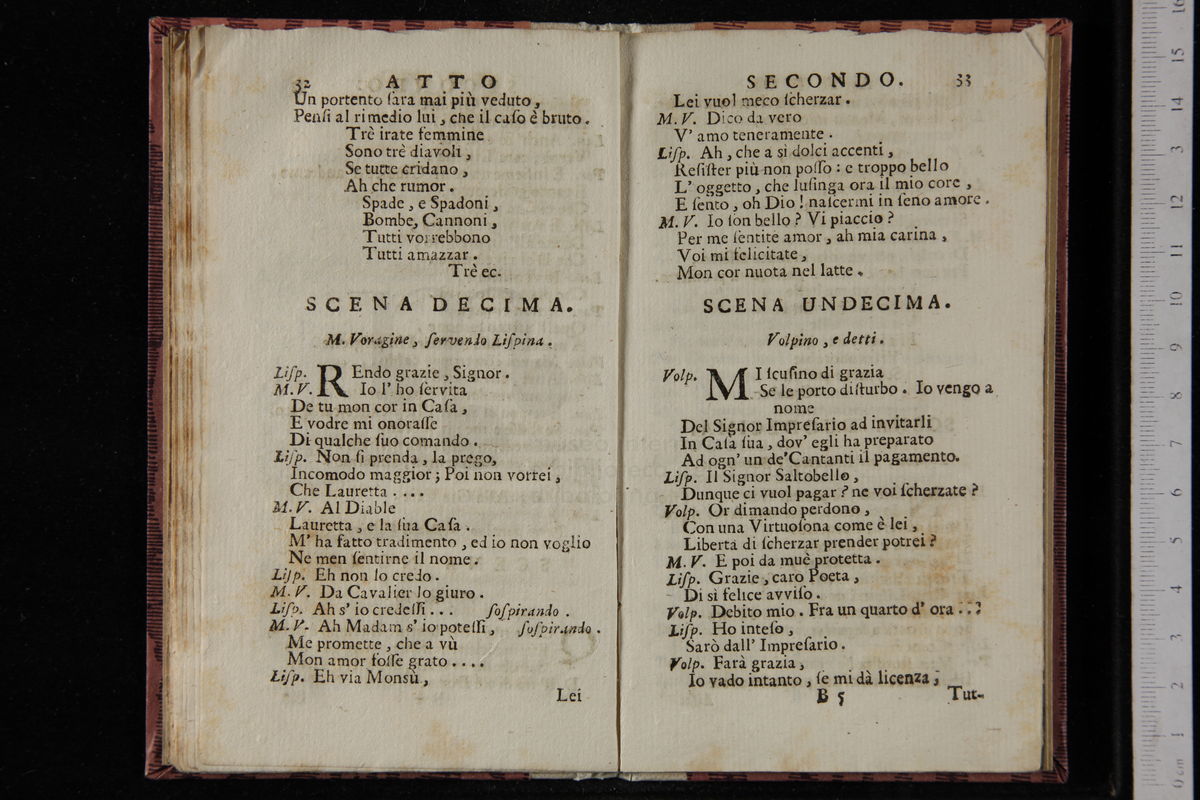 32 ATTO
Un portento sara mai più veduto,
Pensi al rimedio lui, che il caso è bruto.
Trè irate femmine
Sono trè diavoli,
Se tutte cridano,
Ah che rumor.
Spade, e Spadoni,
Bombe, Cannoni,
Tutti vorrebbono
Tutti amazzar.
Trè ec.
SCENA DECIMA.
M. Voragine, servendo Lispina.
Lisp. REndo grazie, Signor.
M. V. Io l' ho servita
De tu mon cor in Casa,
E vodre mi onorasse
Di qualche suo comando.
Lisp. Non si prenda, la prego,
Incomodo maggior; Poi non vorrei,
Che Lauretta....
M. V. Al Diable
Lauretta, e la sua Casa.
M' ha fatto tradimento, ed io non voglio
Ne men sentirne il nome.
Lisp. Eh non lo credo.
M. V. Da Cavalier lo giuro.
Lisp. Ah s' io credessi... sospirando.
M. V. Ah Madam s' io potessi, sospirando.
Me promette, che a vù
Mon amor fosse grato....
Lisp. Eh via Monsù,
Lei
SECONDO. 33
Lei vuol meco scherzar.
M. V. Dico da vero
V' amo teneramente.
Lisp. Ah, che a si dolci accenti,
Resister più non posso: e troppo bello
L' oggetto, che lusinga ora il mio core,
E sento, oh Dio! nascermi in seno amore.
M. V. Io son bello? Vi piaccio?
Per me sentite amor, ah mia carina,
Voi mi felicitate,
Mon cor nuota nel latte.
SCENA UNDECIMA.
Volpino, e detti.
Volp. MI scusino di grazia
Se le porto disturbo. Io vengo a
nome
Del Signor Impresario ad invitarli
In Casa sua, dov' egli ha preparato
Ad ogn' un de' Cantanti il pagamento.
Lisp. Il Signor Saltobello,
Dunque ci vuol pagar? ne voi scherzate?
Volp. Or dimando perdono,
Con una Virtuosona come è lei,
Libertà di scherzar prender potrei?
M. V. E poi da muè protetta.
Lisp. Grazie, caro Poeta,
Di sì felice avviso.
Volp. Debito mio. Fra un quarto d' ora..?
Lisp. Ho inteso,
Sarò dall' Impresario.
Volp. Farà grazia,
Io vado intanto, se mi dà licenza;
B 5 Tut-